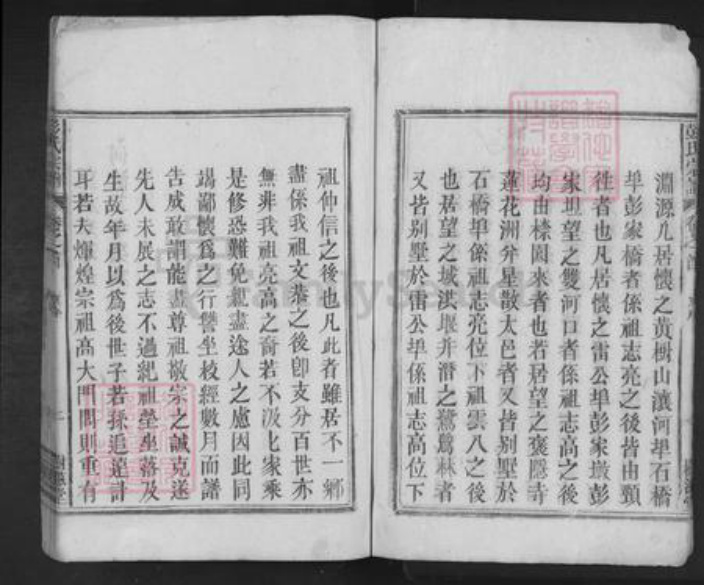 淵源凡居懷之黃樹山瀼河埠石橋
埠彭家橋者係祖志亮之後皆由頸
徃者也凡居懷之雷公埠彭家墩彭
家坦望之雙河口者係祖志高之後
均由棣園來者也若居望之褒隱寺
蓮花洲分星散太邑者又皆別墅於
石橋埠係祖志亮位下祖雲八之後
也居望之城洪堰并潛之鷺鷥林者
又皆別墅於雷公埠係祖志高位下
祖仲信之後也凡此者雖居不一鄉
盡係我祖文恭之後卽支分百世亦
無非我祖亮高之裔若不汲比家乘
是修恐難免親盡途人之慮因此同
竭鄙懷爲之行讐坐校經數月而譜
告成敢謂能盡尊祖敬宗之誠克遂
先人未展之志不過紀祖塋坐落及
生故年月以爲後世子若孫追遠計
耳若夫煇煌宗祖高大門閭則重有
彭氏宗譜
卷之首